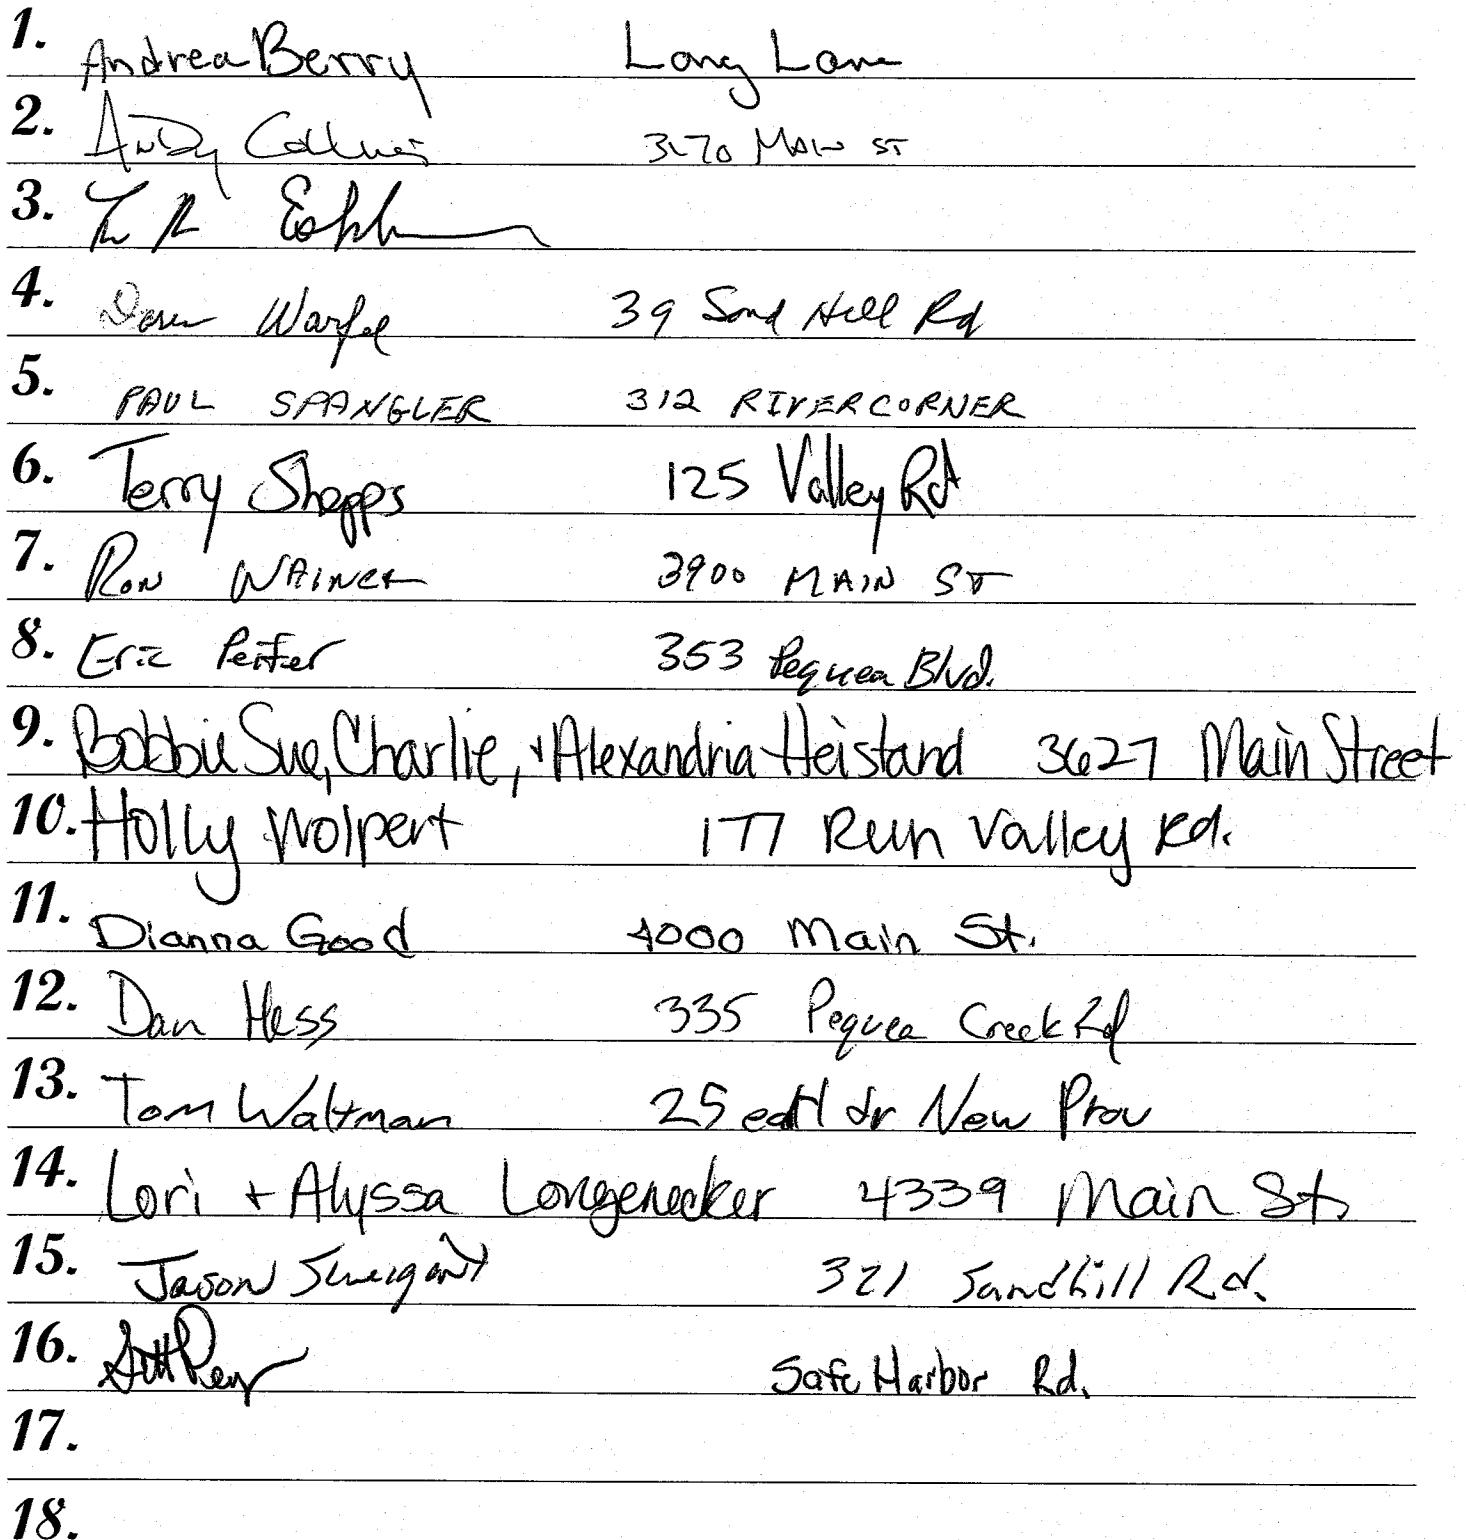 1. Andrea Berry Long Lane
2. Andy Collins 3170 Main ST
3.
4. Warfel 39 Sand Hill Rd
5. PAUL SPANGLER 312 RIVERCORNER
6. Terry Shopps 125 Valley Rd
7. Ron WAINER 3900 MAIN ST
8. Eric Peifer 353 Pequea Blvd.
9. Bobbie Sue, Charlie, + Alexandria Heistand 3627 Main Street
10. Holly Wolpert 177 Run Valley Rd.
11. Dianna Good 4000 Main St.
12. Dan Hess 335 Pequea Creek Rd
13. Tom Waltman 25 dr New Prov
14. Lori + Alyssa Longenecker 4339 Main St.
15. Jason Sweigart 321 Sandhill Rd.
16. Safe Harbor Rd.
17.
18.